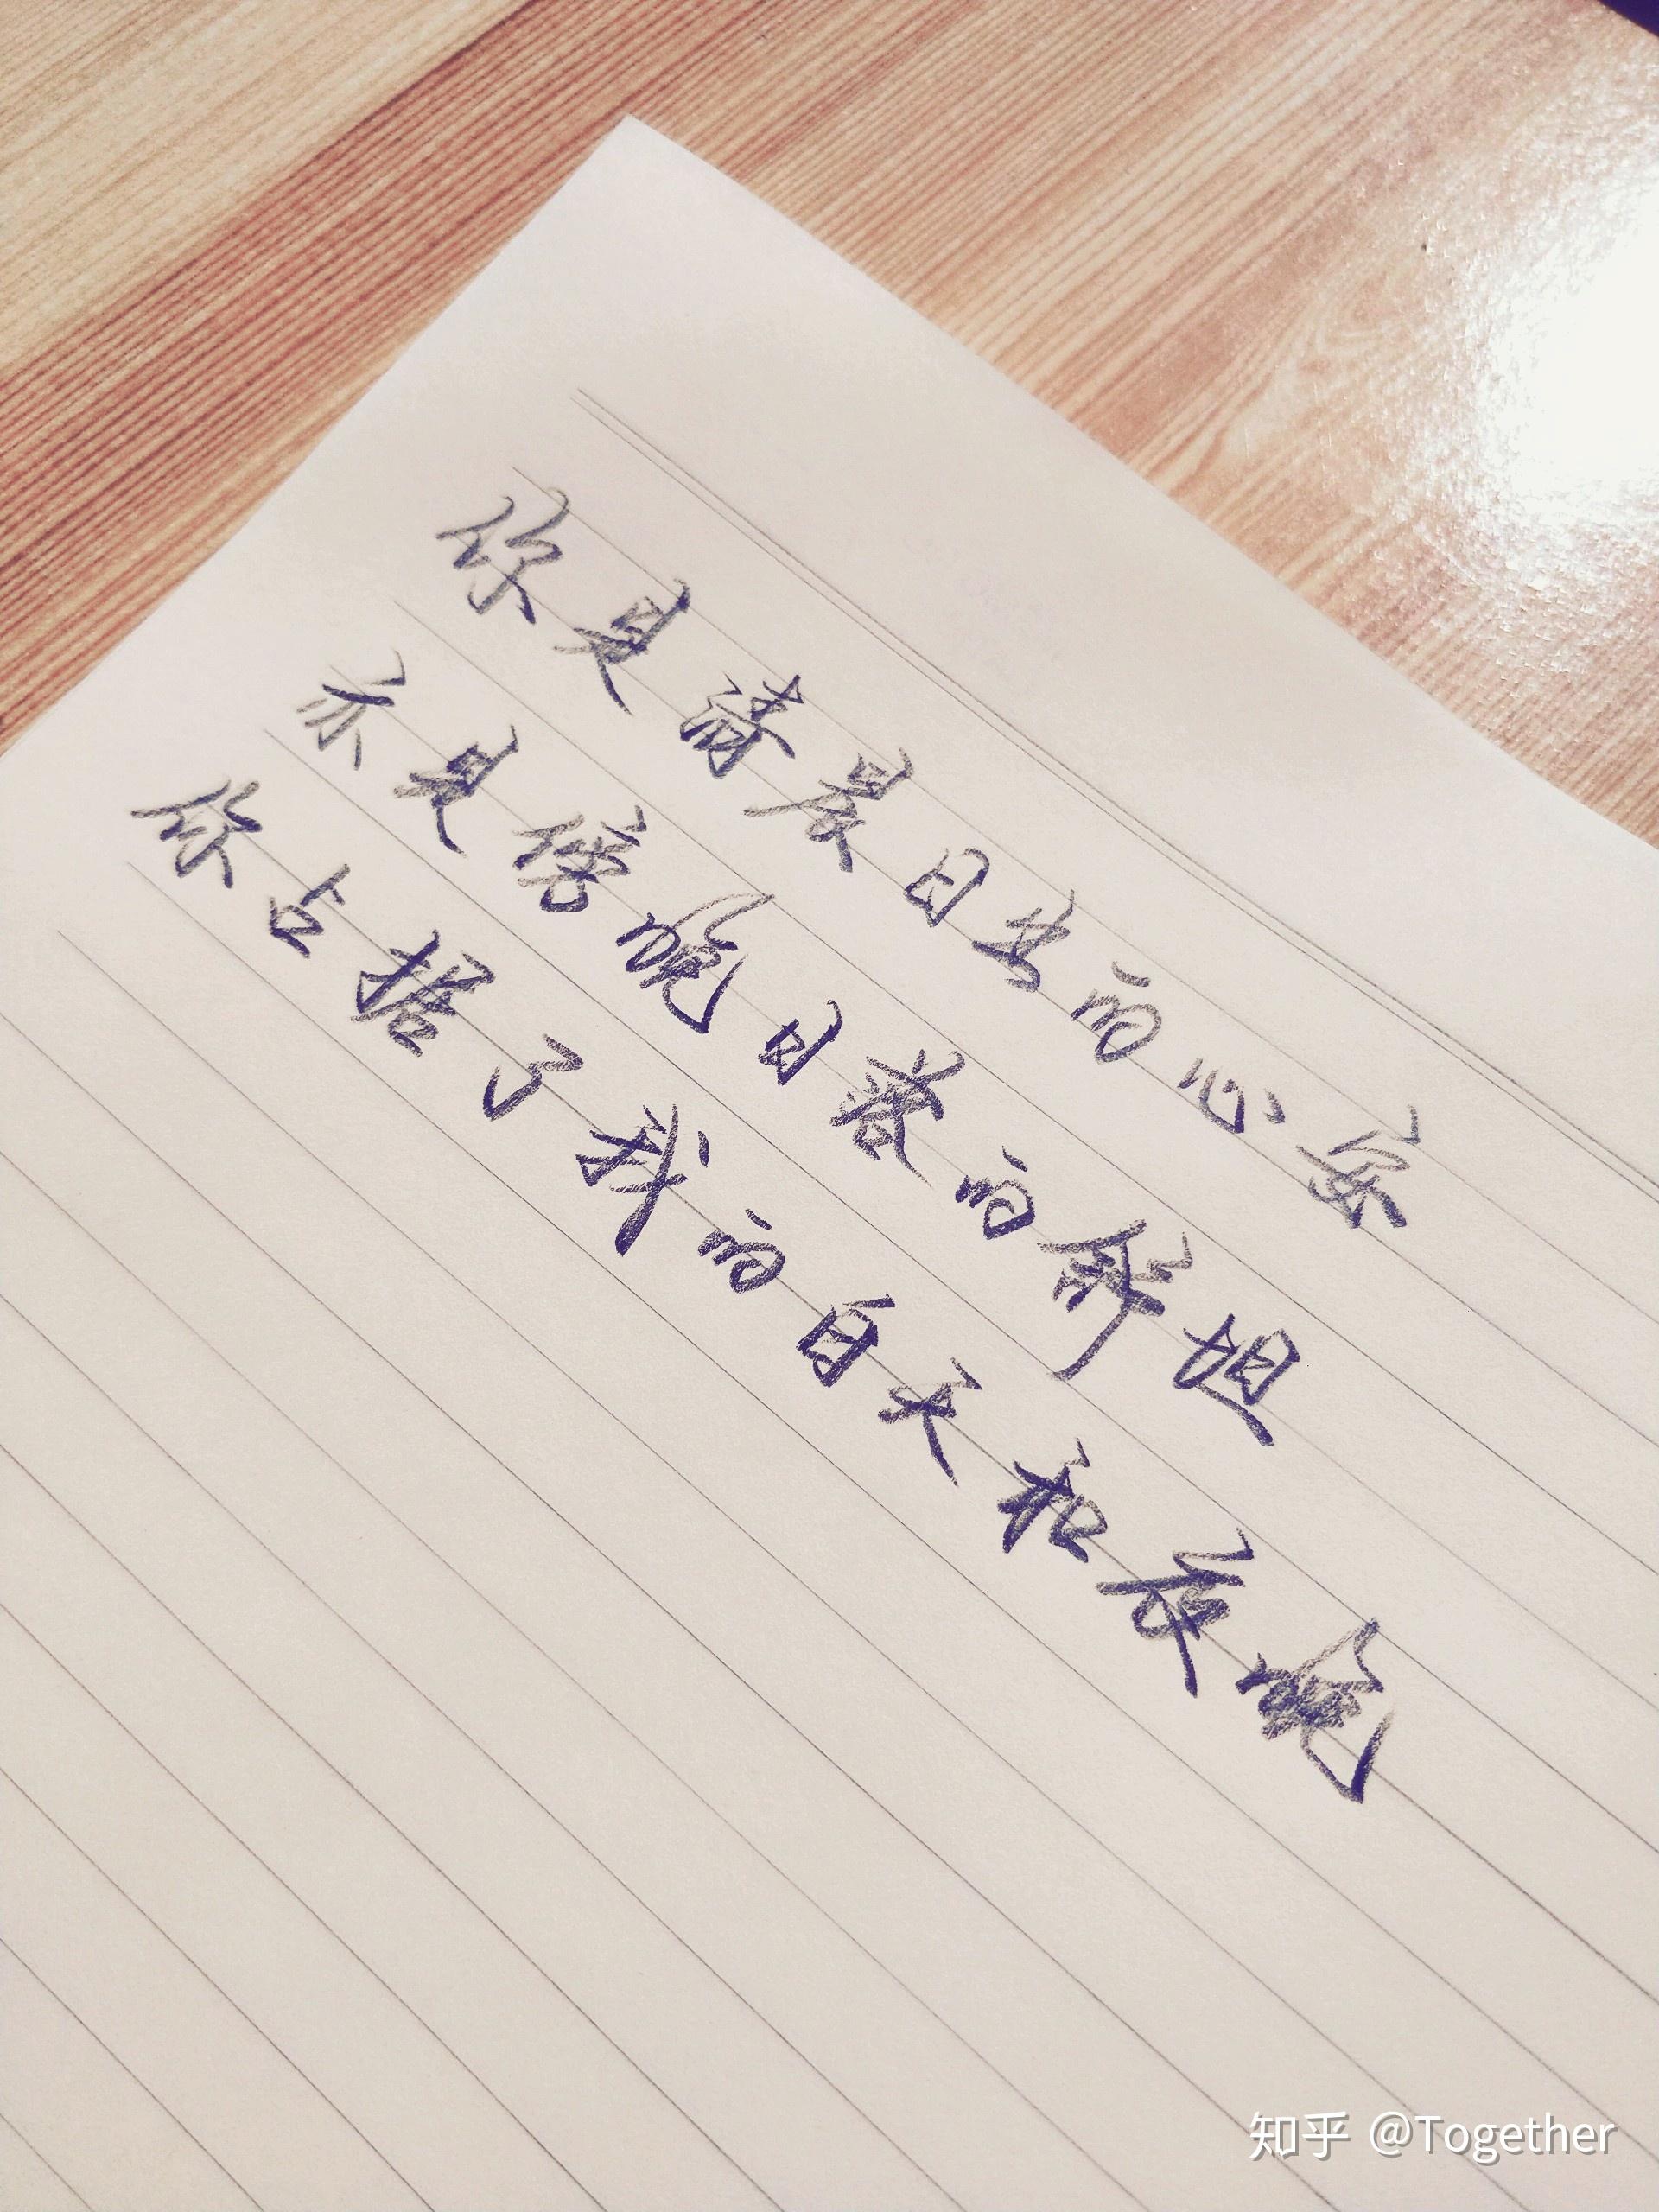 你是清晨日出的心安
亦是傍晚日暮的彩翅
你占据了我的白天和夜晚
知乎 @Together